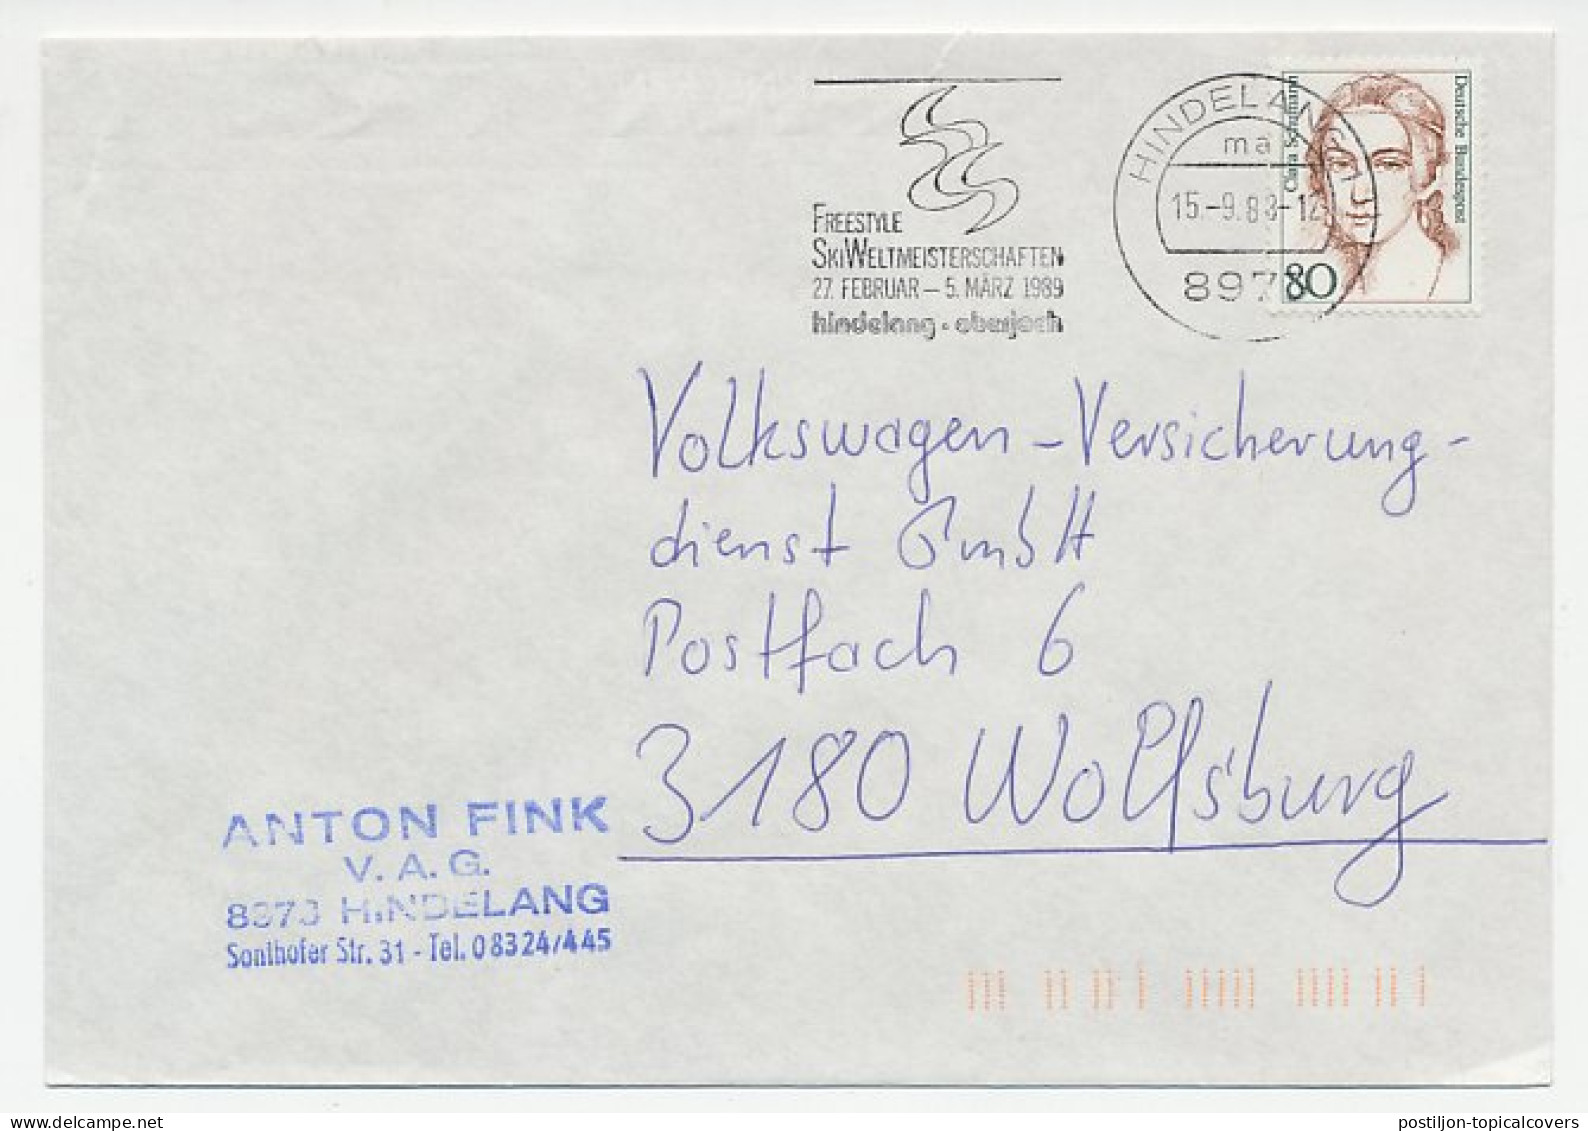 FREESTYLE
SKIWELTMEISTERSCHAFTEN
27. FEBRUAR – 5. MÄRZ 1989
hindelang · oberjoch
HINDELANG 1
ma
15.-9.88-12
897
Clara Schumann
Deutsche Bundespost
80
Volkswagen-Versicherung-
dienst GmbH
Postfach 6
3180 Wolfsburg
ANTON FINK
V. A. G.
8973 HINDELANG
Sonthofer Str. 31 - Tel. 08324/445
postiljon-topicalcovers